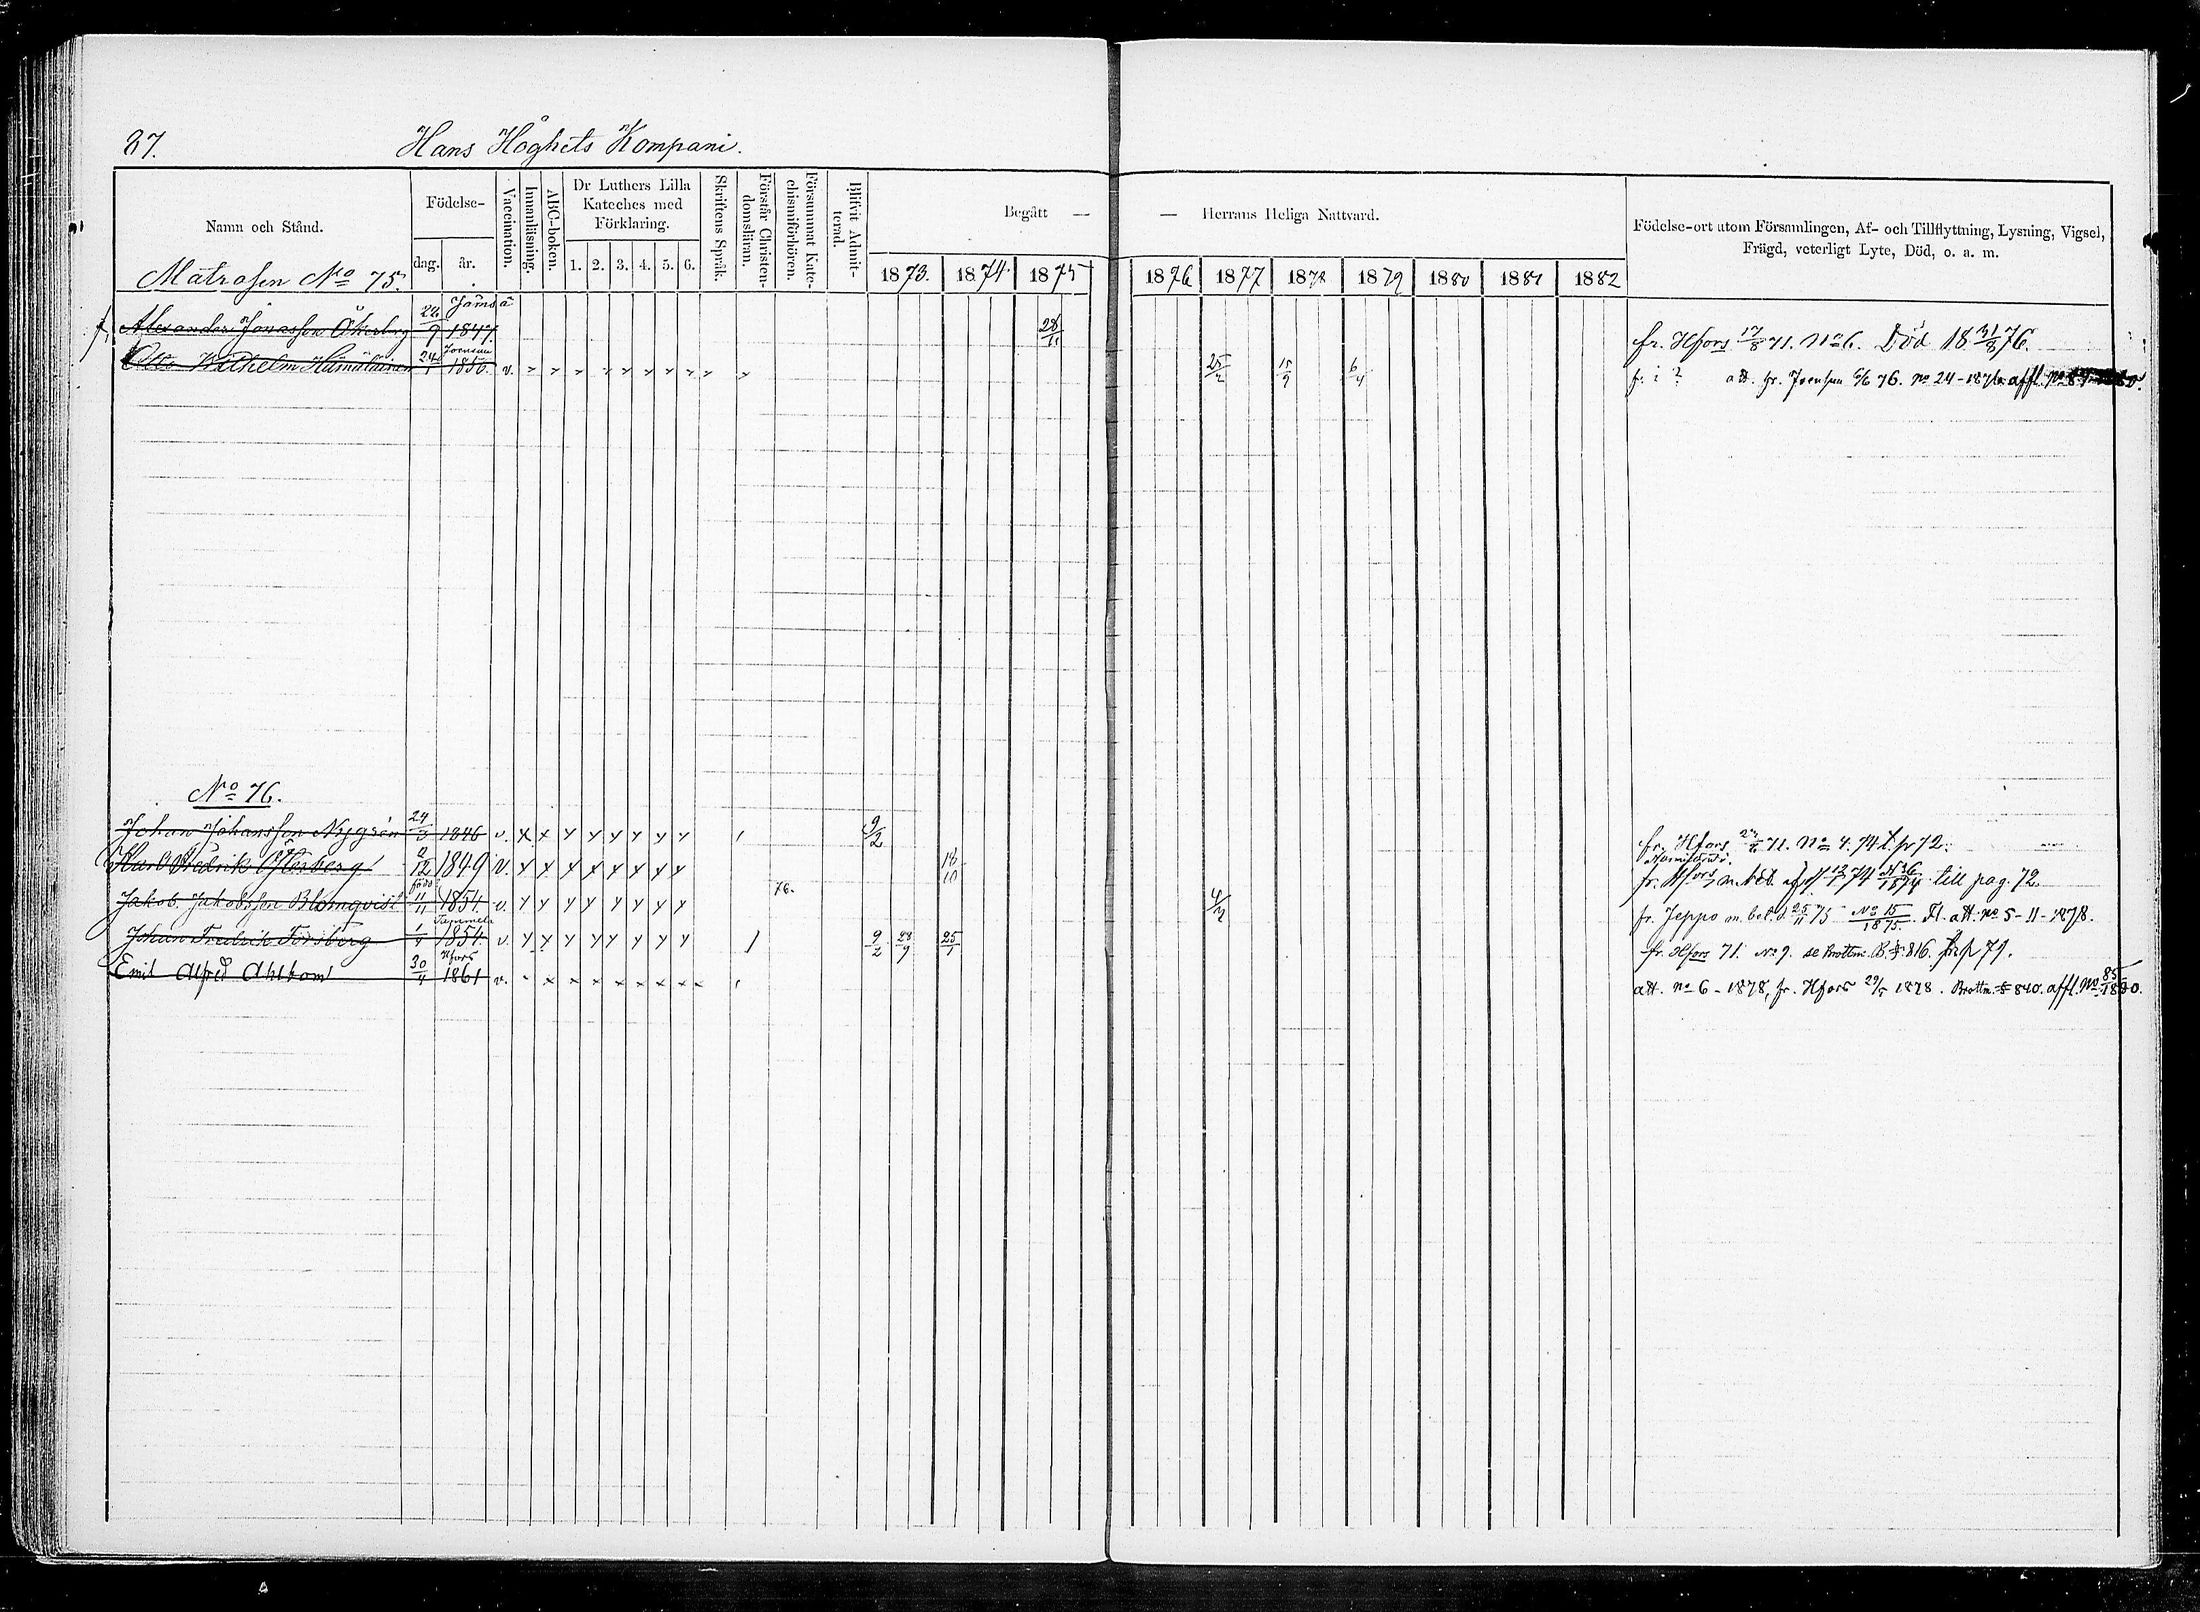 87.
Hans Höghets Kompani.
Namn och Stånd.
Födelse-
dag. år.
Vaccination.
Innanläsning.
ABC-boken.
Dr Luthers Lilla Kateches med Förklaring.
1. 2. 3. 4. 5. 6.
Skriftens Språk.
Förstår Christendomsläran.
Försummat Katechismiförhören.
Blifvit Admitterad.
Begått — — Herrans Heliga Nattvard.
1873. 1874. 1875 1876 1877 1878 1879 1880 1881 1882
Födelse-ort utom Församlingen, Af- och Tillflyttning, Lysning, Vigsel,
Frägd, veterligt Lyte, Död, o. a. m.
Matrosen No 75.
Alexander Jonasson Åkerberg 22/9 Jämsä 1847. 28/11 fr. Hfors 17/8 71. No 6. Död 18 31/8 76.
Otto Wilhelm Hämäläinen 24/1 Joensuu 1850. v. 25/2 15/9 6/4 fr. i ? att. fr. Joensuu 6/6 76. no 24-1876. affl.
No 76.
Johan Johansson Nygrén 24/3 1846 v. x x 9/2 fr. Hfors 71. No 4. 74 t. p 72.
Karl Fredrik Österberg 2/12 1849 v. 18/10 fr. Hfors 74 till pag. 72.
Jakob Jakobsson Blomqvist 11/11 1854 v. 76. 4/2 fr. Jeppo m. bet. d. 25/11 75 No 15/1875. Fl. att. no 5-11-1878.
Johan Fredrik Forsberg 1/4 1854 v. 9/2 28/9 25/1 fr. Hfors 71. No 9. se Brottm. B. § 816. p 79.
Emil Alfred Ahlbom 30/4 Hfors 1861 v. att. no 6-1878, fr. Hfors 29/5 1878. Brottm. § 840. affl. No 85/1880.